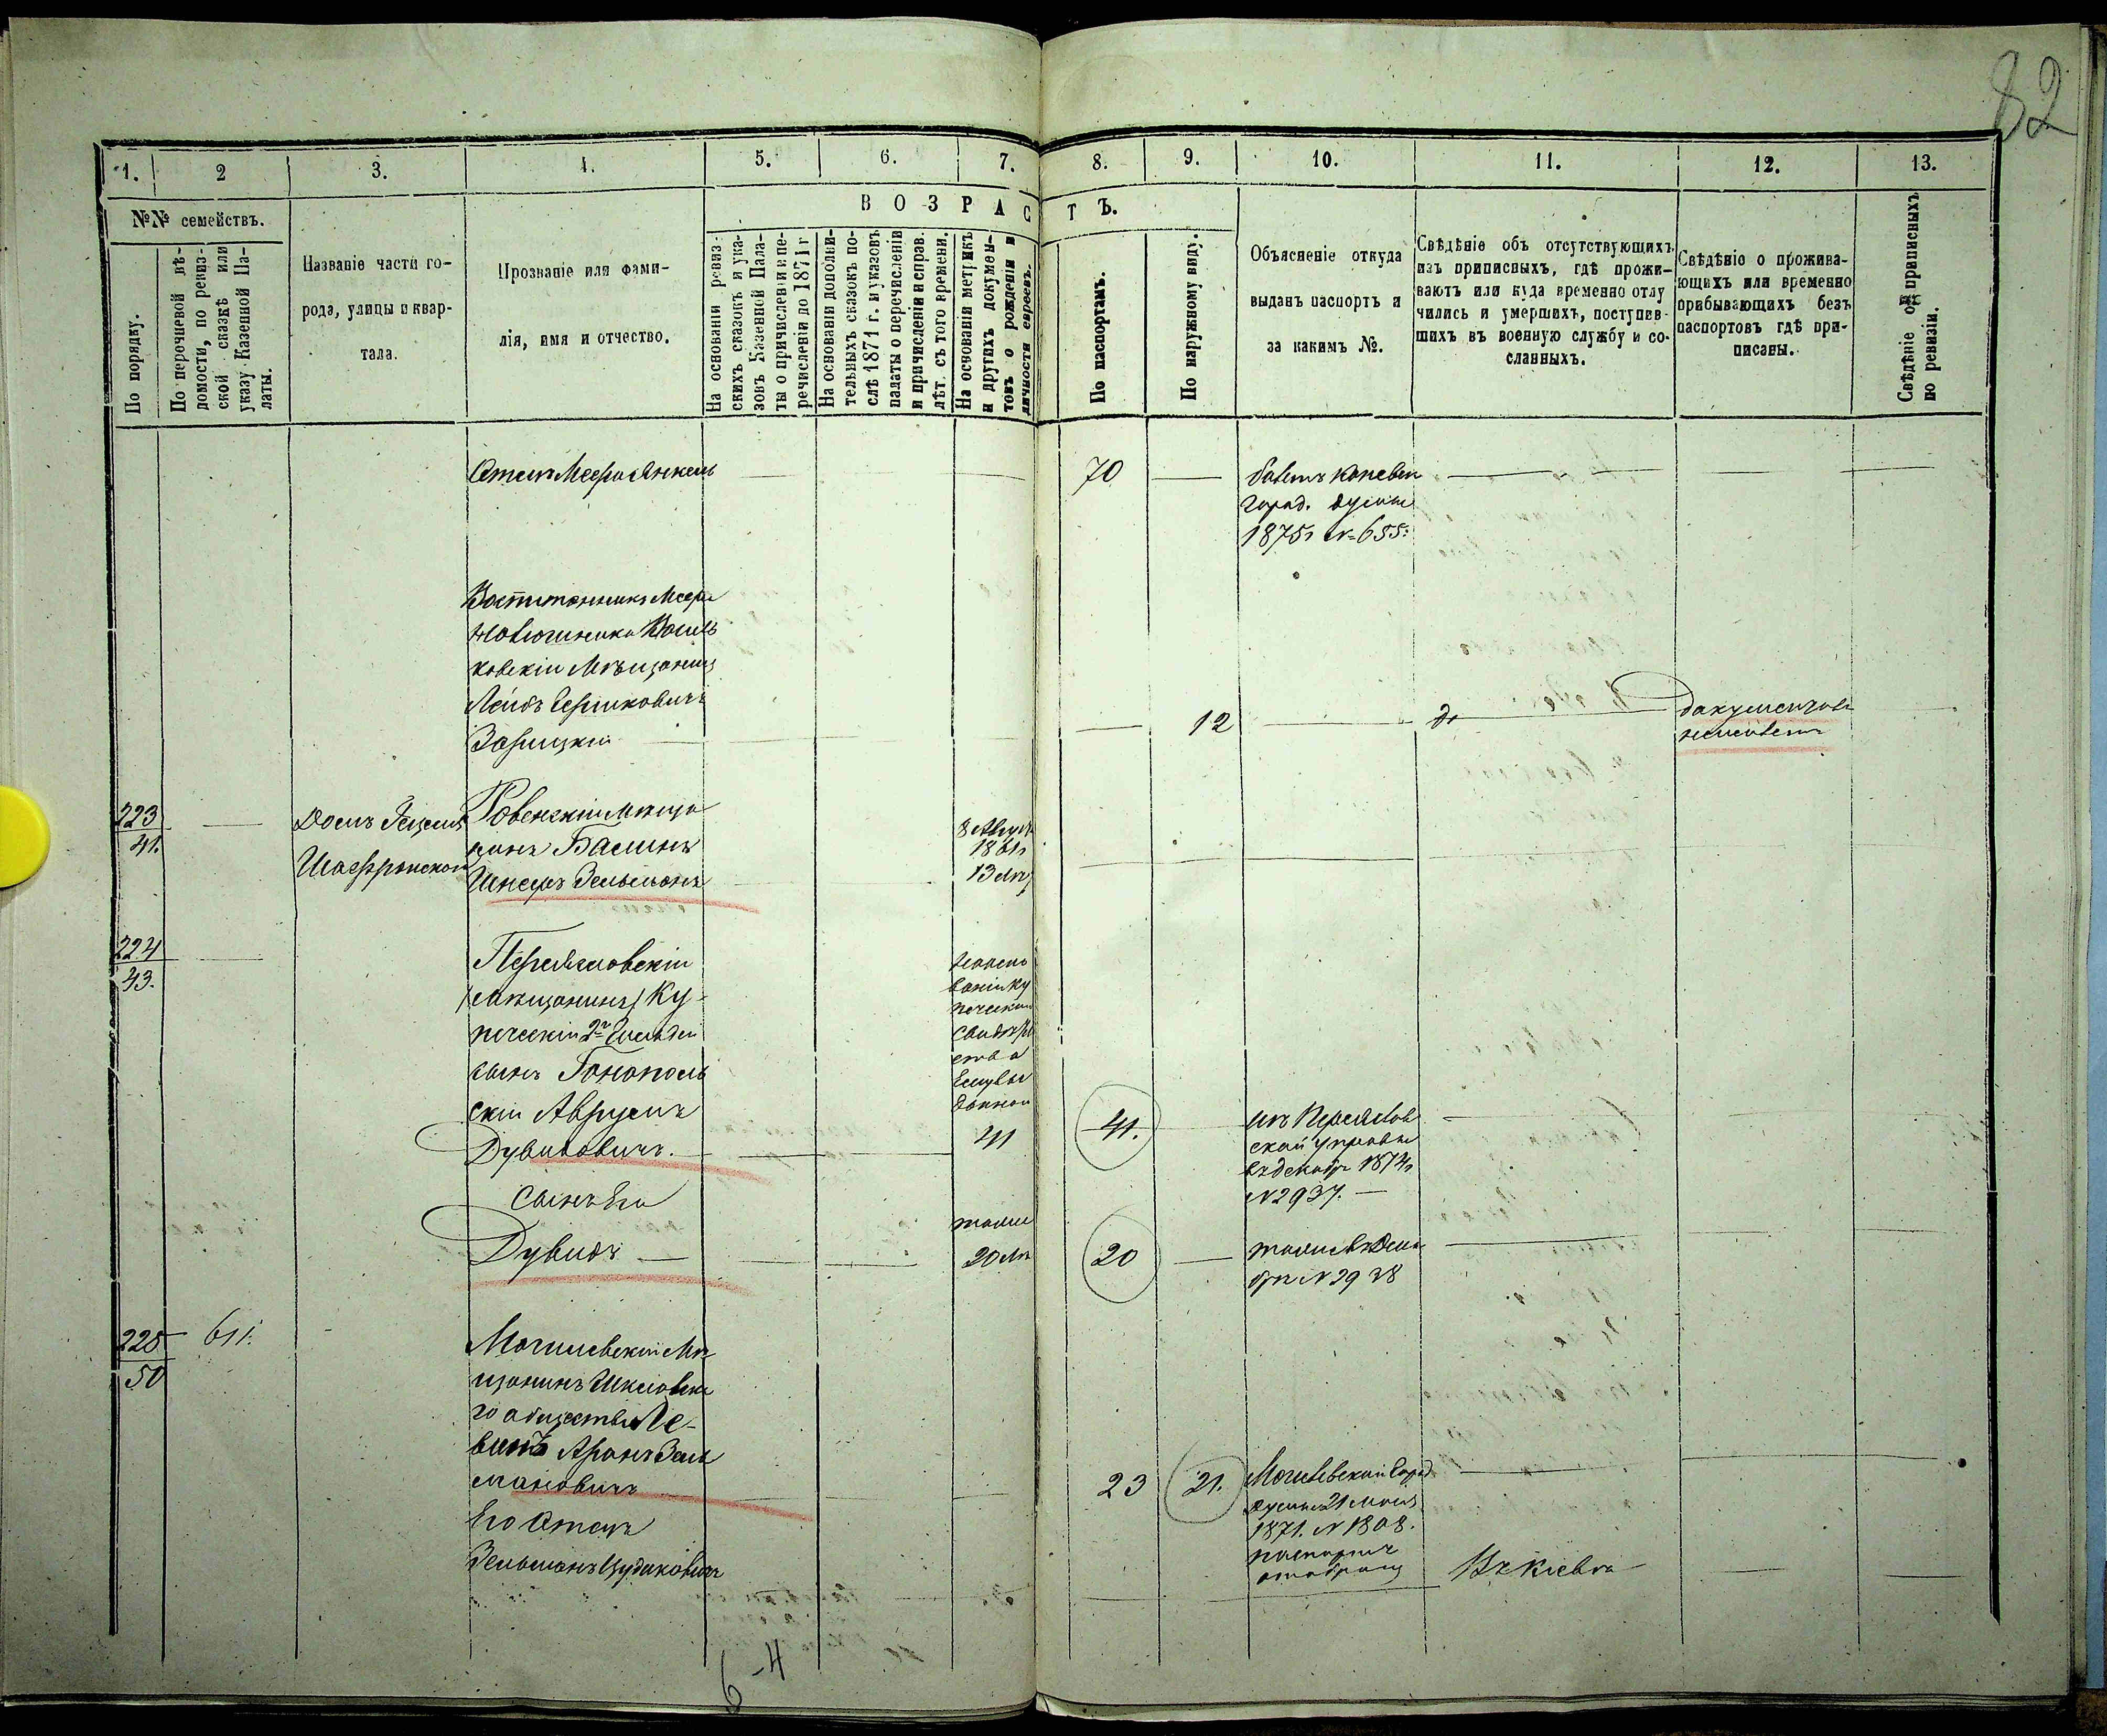 82
1.
2
3.
4.
5.
6.
7.
8.
9.
10.
11.
12.
13.
№№ семействъ.
По порядку.
По перечневой вѣ-
домости, по ревиз-
ской сказкѣ или
указу Казенной Па-
латы.
Названіе части го-
рода, улицы и квар-
тала.
Прозваніе или фами-
лія, имя и отчество.
ВОЗРАСТЪ.
На основаніи ревиз-
скихъ сказокъ и ука-
зовъ Казенной Пала-
ты о причисленіи и пе-
речисленіи до 1871 г
На основаніи дополни-
тельныхъ сказокъ по-
слѣ 1871 г. и указовъ
палаты о перечисленіи
и причисленіи и справ.
лѣт. съ того времени.
На основаніи метрикъ
и другихъ докумен-
товъ о рожденіи и
личности евреевъ.
По паспортамъ.
По наружному виду.
Объясненіе откуда
выданъ паспортъ и
за какимъ №.
Свѣдѣніе объ отсутствующихъ
изъ приписныхъ, гдѣ прожи-
ваютъ или куда временно отлу
чились и умершихъ, поступив-
шихъ въ военную службу и со-
сланныхъ.
Свѣдѣніо о прожива-
ющихъ или временно
прибывающихъ безъ
паспортовъ гдѣ при-
писаны.
Свѣдѣніе о приписныхъ
по ревизіи.
Отецъ Меера Янкель
70
билетъ Каневск
город. думы
1875г № 655.
Воспитанникъ Меера
Василь
ковскій Мѣщанинъ
Лейбъ Гершковичъ
Зарицкій
12
документовъ
неимѣетъ
223
41.
Домъ
Шафранской
Ровенскій мѣща
нинъ Балинъ
Шнееръ Зельманъ
8 Август
1861г
13 лѣт
224
43.
Переяславскій
(мѣщанинъ) Ку-
печескій 2й Гильдіи
сынъ Гонополь
скій Аврумъ
Дувидовичъ.
на осно
ваніи Ку
печескаго
свидѣтель
ства
Ему вы
даннои
41
41.
изъ Переяслав
ской управы
въ декабр 1874г
№ 2937.
Сынъ Его
Дувидъ
тоже
20 лѣт
20
тоже въ Дека
брѣ № 2938
225
50
611.
Могилевскій Мѣ
щанинъ Шкловска
го общества Ле-
винъ Аронъ Зель
мановичъ
23
21.
Могилевской Город
думы 21 Мая
1871. № 1808.
паспортъ
отобранъ
Его Отецъ
Зельманъ Цудиковичъ
Въ Кіевѣ
6-4